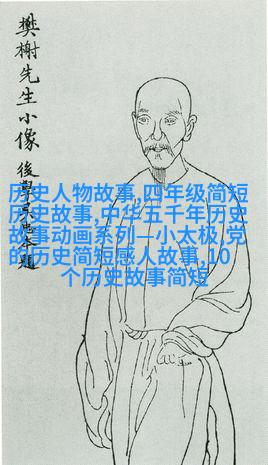 樊榭先生小像
後學
历史人物故事,四年级简短
历史故事,中华五千年历史
故事动画系列一小太极,党
的历史简短感人故事,10
个历史故事简短